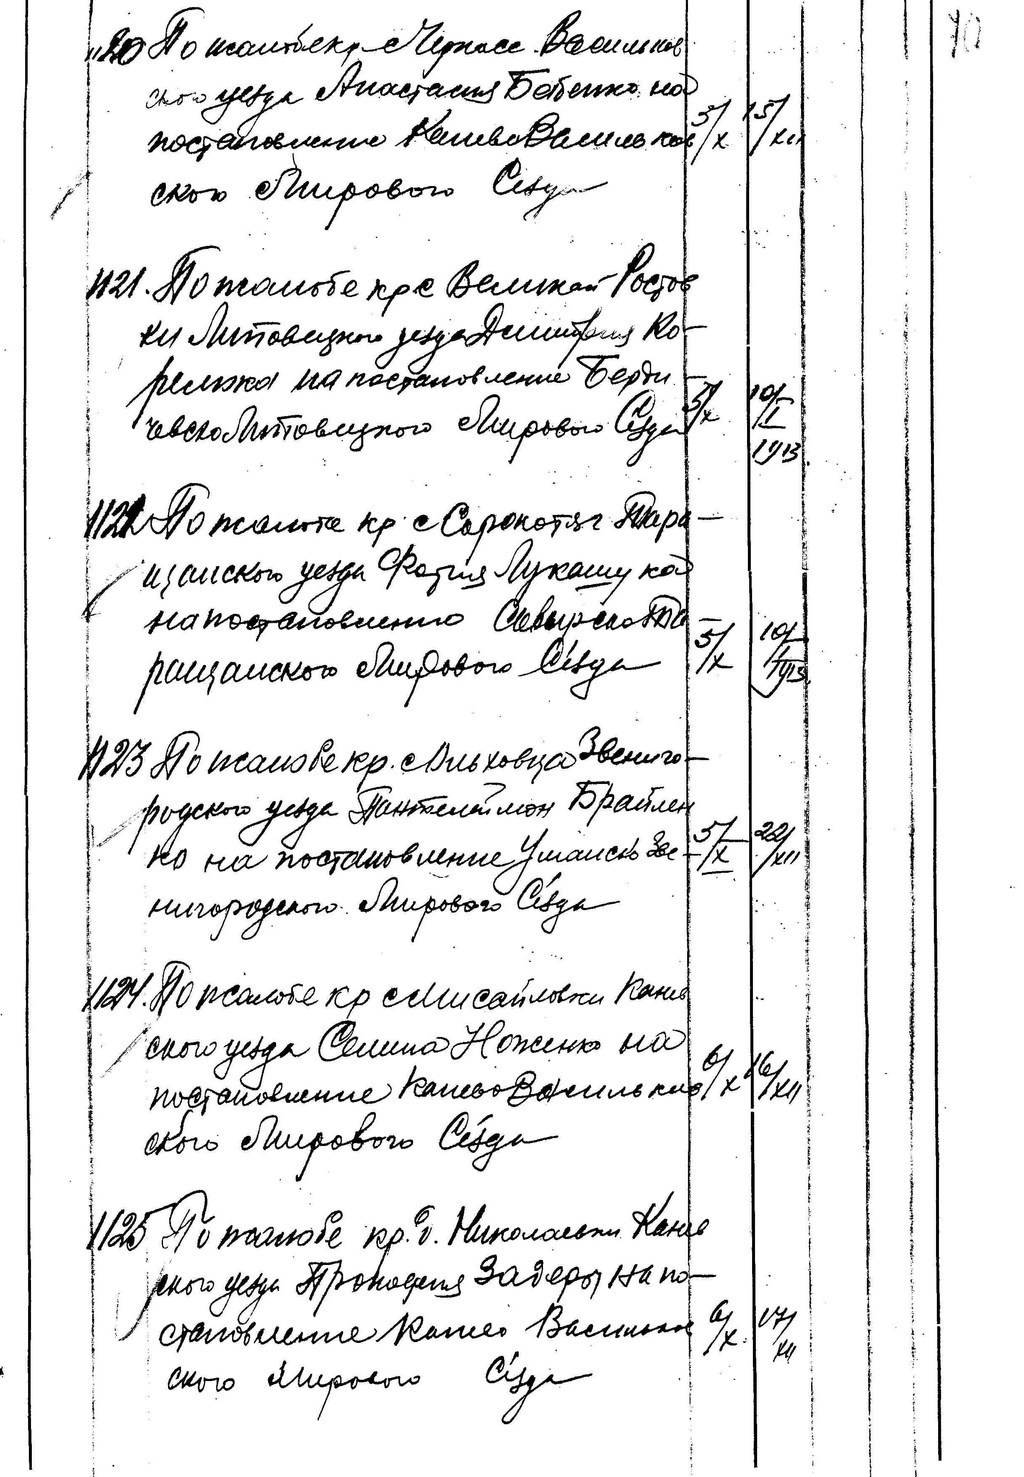 70
1120 По жалобе кр. с Черкасс Васильков
ского уезда Анастасия Бабенко на
постановление Канево Васильков 5/X 15/XII
ского Мирового Сѣзда
1121. По жалобе кр с Великой Ростов
ки Липовецкого уезда Дмитрия Ко-
релюка на постановление Берди-
чевско Липовецкого Мирового Сѣзда 5/X 10/I
1913.
1122 По жалобе кр с Сорокотяг Тара-
щанского уезда Фотия Лукашука
на постановление Сквирско Та-
ращанского Мирового Сѣзда 5/X 10/I 1913.
1123 По жалобе кр. с Ольховца Звениго-
родского уезда Пантелеймон Брайлен
ко на постановление Уманско Зве- 5/X 22/XII
нигородского Мирового Сѣзда
1124. По жалобе кр с Мисайловки Канев
ского уезда Семина Ноженко на
постановление Канево Васильков 6/X 16/XII
ского Мирового Сѣзда
1125 По жалобе кр. д. Николаевки Канев
ского уезда Прокофия Задеры на по-
становление Канево Васильков 6/X 17/XII
ского Мирового Сѣзда